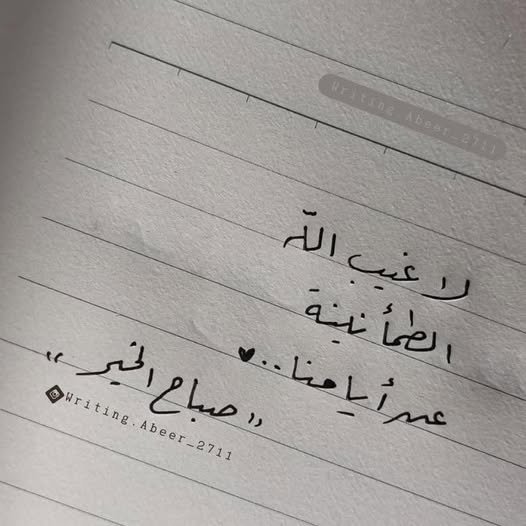 Writing_Abeer_2711
لا غيب الله
الطمأنينة
عن أيامنا..♥
"صباح الخير"
Writing.Abeer_2711